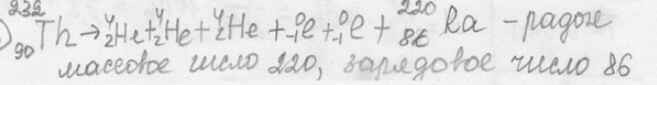 ) ²³²₉₀Th → ⁴₂He + ⁴₂He + ⁴₂He + ⁰₋₁e + ⁰₋₁e + ²²⁰₈₆Ra - радон
массовое число 220, зарядовое число 86